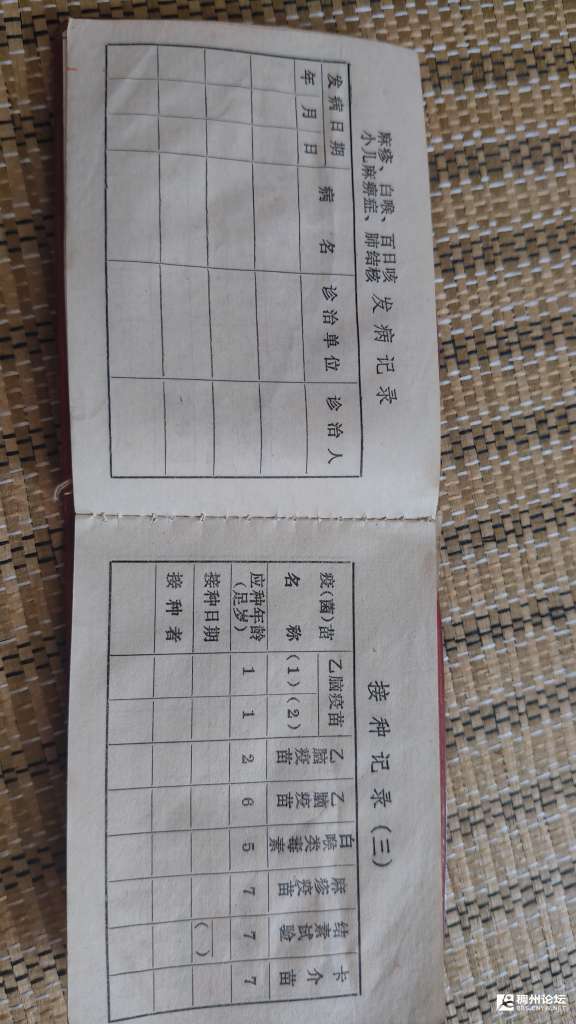 麻疹、白喉、百日咳
小儿麻痹症、肺结核
发病记录
发病日期
年 月 日
病名
诊治单位
诊治人
接种记录(三)
疫(菌)苗
名称
乙脑疫苗
(1) (2)
乙脑疫苗
乙脑疫苗
白喉类毒素
麻疹疫苗
结素试验
卡介苗
应种年龄
(足岁)
1 1 2 6 5 7 7 7
接种日期
( )
接种者
稠州论坛
BBS.CNYW.NET